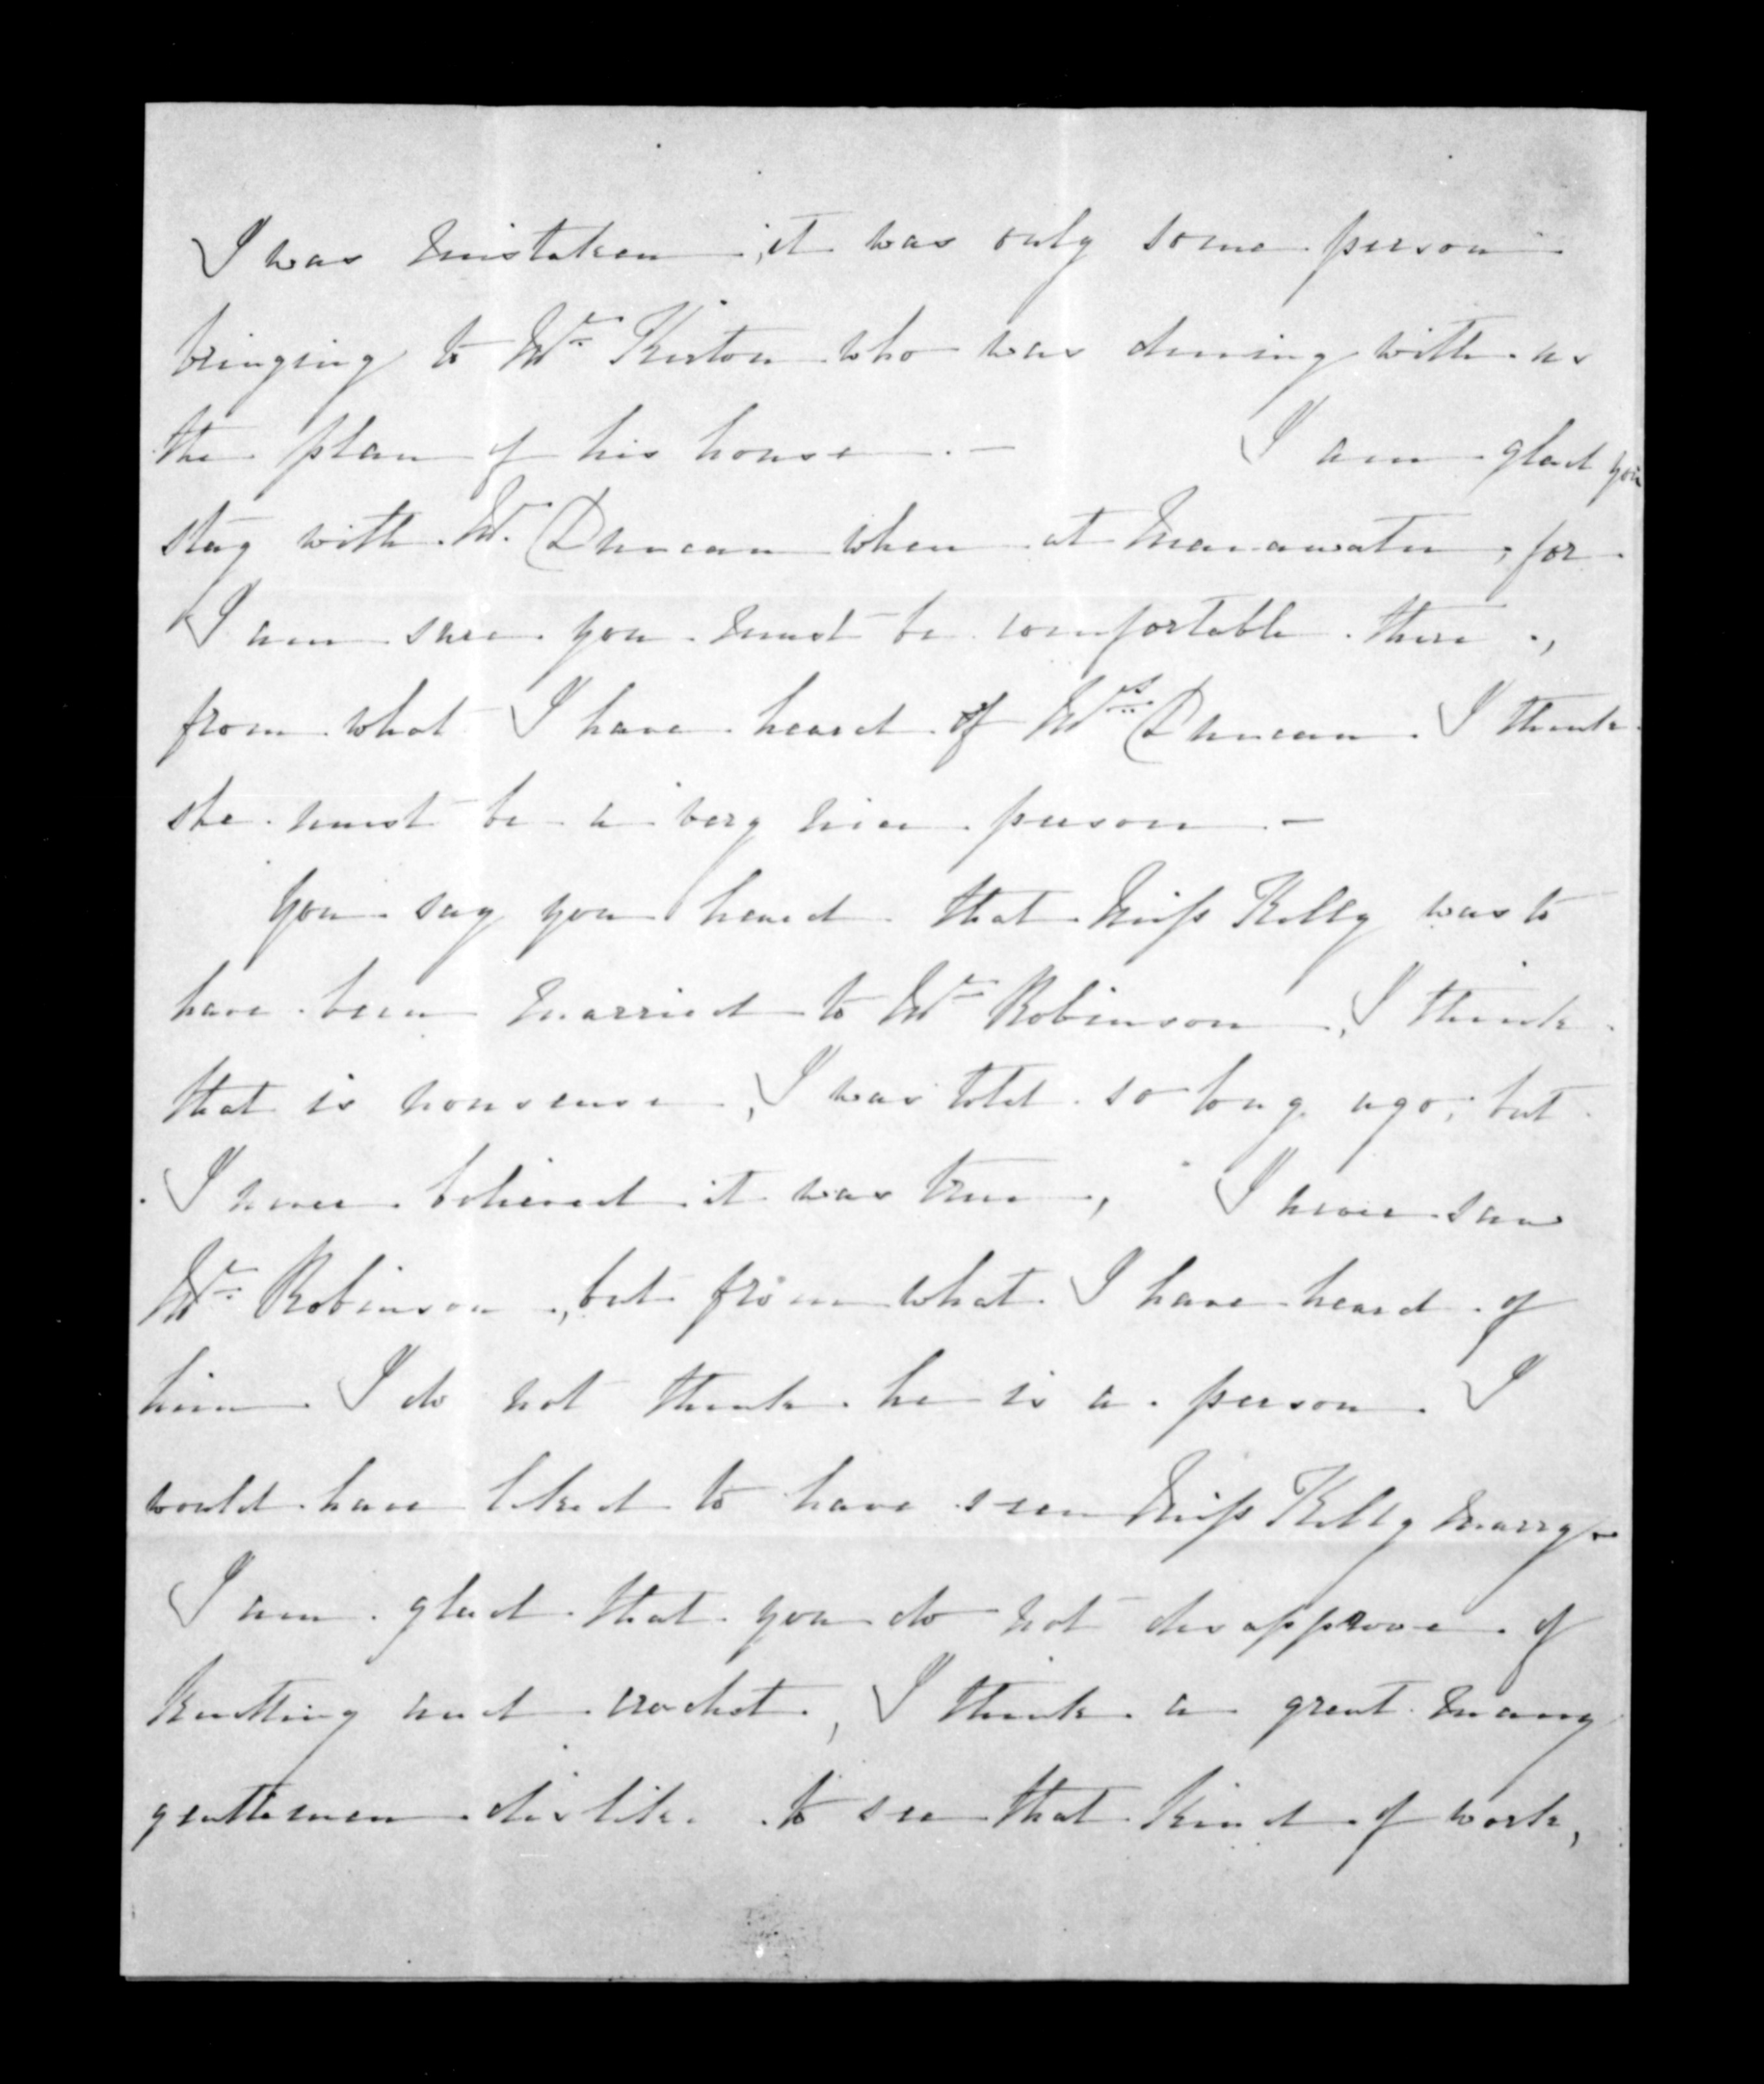 I was mistaken, it was only some person
bringing to Mr Kirton who was dining with us
the plan of his house. - I am glad you
stay with Mr. Duncan when at Manawatu, for
I am sure you must be comfortable there,
from what I have heard of Mrs Duncan. I think
she must be a very nice person -
You say you heard that Miss Kelly was to
have been married to Mr Robinson, I think
that is nonsense, I was told so long ago, but
I never believed it was true, I never saw
Mr Robinson, but from what I have heard of
him I do not think he is a person I
would have liked to have seen Miss Kelly marry -
I am glad that you do not disapprove of
knitting and crochet, I think a great many
gentlemen dislike to see that kind of work,